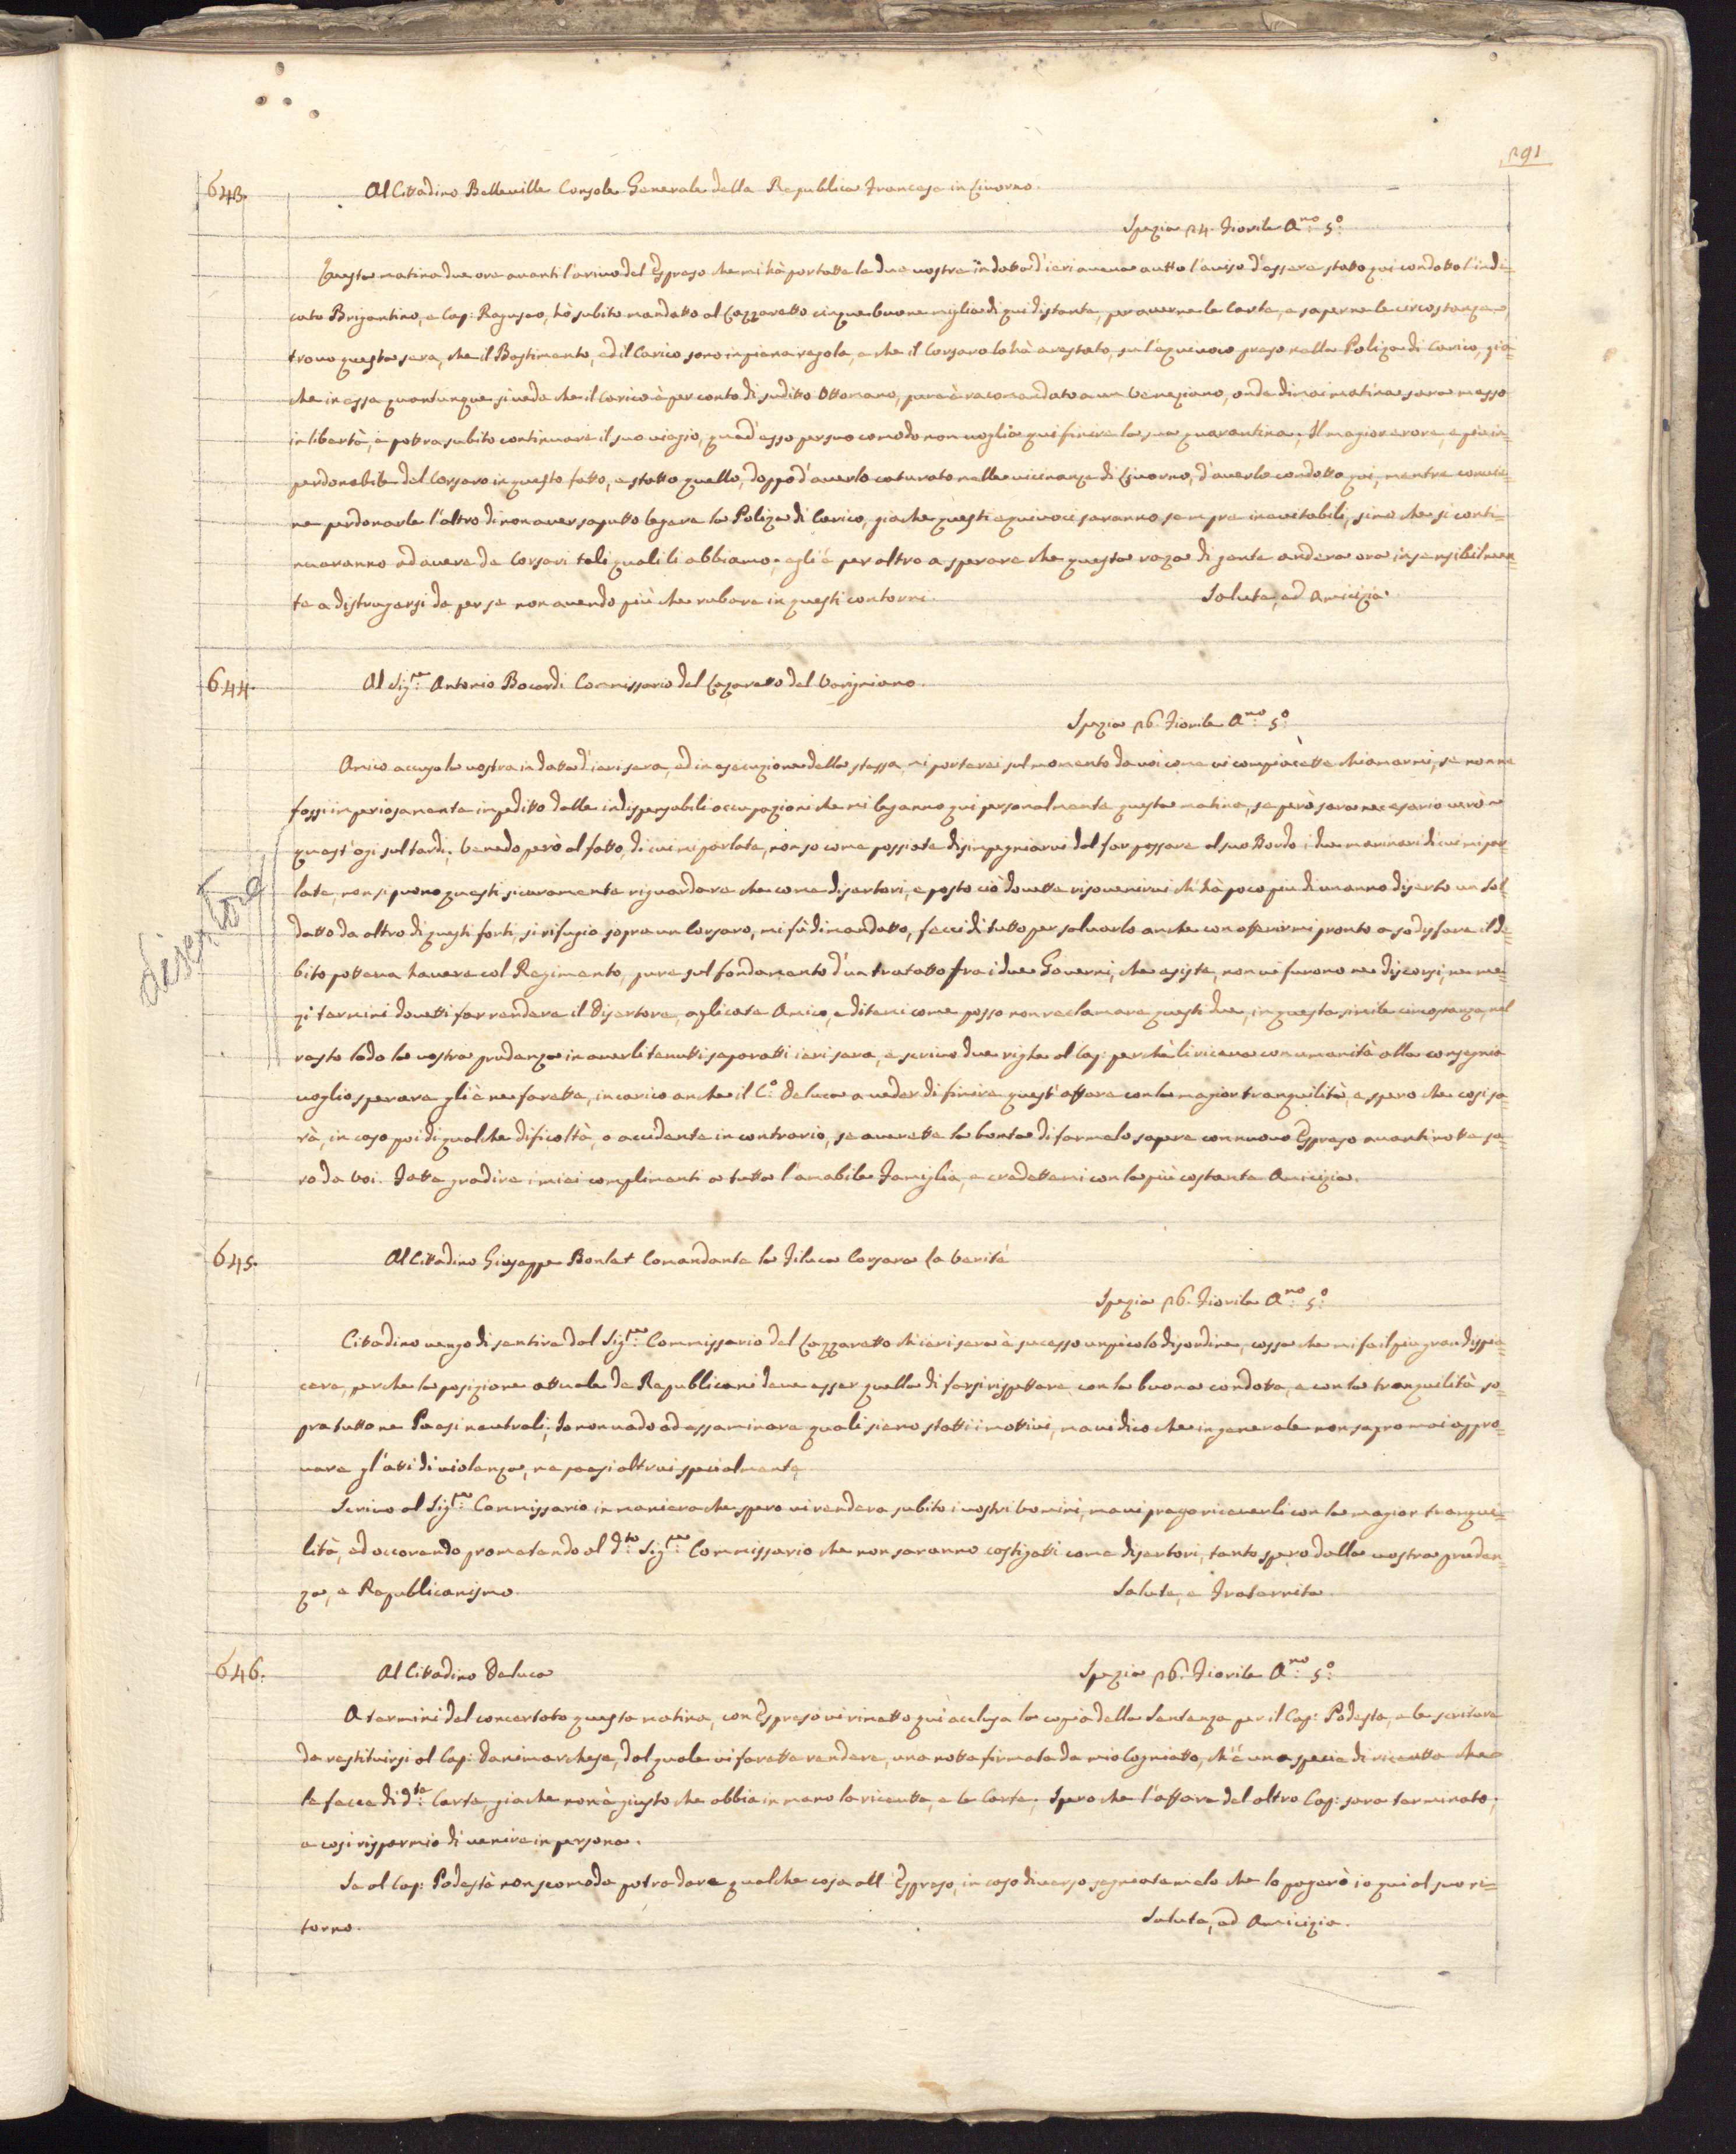 291
643. Al Cittadino Belleville Console Generale della Republica Francese in Livorno.
Spezia 24. Fiorile A.no 5.o
Questa matina due ore avanti l'arivo del Espreso che mi hà portatte le due vostre in datta d'ieri aveva autto l'aviso d'essere statto qui condotto l'indi=
cato Brigantino, e Cap: Raguseo, hò subito mandatto al Lazzaretto cinque buone miglia di qui distante, per averne le Carte, e saperne le circostanze,
trovo questa sera, che il Bastimento, ed il Carico sono in piena regola, e che il Corsaro lo hà arestato, su l'equivoco preso nella Poliza di Carico, gia=
che in essa quantunque si veda che il Carico è per conto di suditto Ottomano, pure è racomandato a un Veneziano, onde dimai matina sara messo
in libertà, e potra subito continuare il suo viagio, quand'esso per suo comodo non voglia qui finire la sua quarantina; Il magior erore, e piu in=
perdonabile del Corsaro in questo fatto, e statto quello, doppo d'averlo caturato nelle vicinanze di Livorno, d'averlo condotto qui, mentre convie=
ne perdonarle l'altro di non aver saputto legere la Poliza di Carico, giache questi equivoci saranno sempre inevitabili, sino che si conti=
nuaranno ad avere de Corsari tali quali li abbiamo; egli é per altro a sperare che questa raza di gente andera ora insensibilmen=
te a distrugersi da per se non avendo più che rubare in questi contorni. Salute, ed Amicizia
644. Al Sig.re Antonio Bocardi Commissario del Lazaretto del Varigniano.
Spezia 26. Fiorile A.no 5.o
Amico accuso la vostra in datta d'ieri sera, ed in esecuzione della stessa, mi porterei sul momento da voi come vi compiacette chiamarmi, se non ne
fossi imperiosamente impeditto dalle indispensabili occupazioni che mi legano qui personalmente questa matina, se però sara necesario verò
quest'ogi sul tardi; Venedo però al fatto, di cui mi parlate, non so come possiate disimpegniarvi dal far passare al suo Bordo i due marinari di cui mi par=
late, non si puono questi sicuramente riguardare che come disertori, e posto ciò dovette risovenirvi ch'hà poco piu di un anno diserto un Sol=
datto da altro di questi forti, si rifugio sopra un Corsaro, mi fù dimandatto, feci di tutto per salvarlo anche con offerirmi pronto a sodisfare il de=
bito potteva havere col Regimento, pure sul fondamento d'un tratatto fra i due Governi, che esiste, non vi furono ne discorsi, ne me=
zi termini dovetti far rendere il Disertore, aplicate Amico, e ditemi come posso non reclamare questi due, in questa simile circostanza, nel
resto lodo la vostra prudenza in averli tenutti separatti ieri sera, e scrivo due righe al Cap: perchè li riceva con umanità alla consegnia
voglio sperare gliè ne farette, incarico anche il C.o Deluca a veder di finire quest'affare con la magior tranquilità, e spero che cosi sa=
rà, in caso poi di qualche dificoltà, o accidente in contrario, se averette la bonta di farmelo sapere con nuovo Espreso avanti notte sa=
ro da Voi. Fatte gradire i miei complimenti a tutta l'amabile Famiglia, e credettemi con la più costante Amicizia.
disertore
645. Al Cittadino Giuseppe Bonlet Comandante la Filuca Corsara la Verité
Spezia 26. Fiorile A.no 5.o
Cittadino vengo di sentire dal Sig.re Commissario del Lazzaretto ch'ieri sera è sucesso un picolo disordine, cossa che mi fa il piu gran dispia=
cere, perche la posizione attuale de Republicani deve esser quella di farsi rispettare con la buona condotta, e con la tranquilità so=
pra tutto ne Paesi neutrali; Io non vado ad essaminare quali sieno statti i mottivi, ma vi dico che in generale non sapro mai appro=
vare gl'atti di violenza, ne paesi altrui specialmente
Scrivo al Sig.re Commissario in maniera che spero vi rendera subito i vostri Uomini, ma vi prego riceverli con la magior tranqui=
lità, ed occorendo prometendo al d.to Sig.re Commissario che non saranno castigatti come disertori, tanto spero dalla vostra pruden
za, e Republicanismo. Salute, e Fraternita
646. Al Cittadino Deluca Spezia 26. Fiorile A.no 5.o
A termini del concertato questa matina, con Espreso vi rimetto qui acclusa la copia della Sentenza per il Cap: Podesta, e le scriture
da restituirsi al Cap: Danimarchese, dal quale vi farette rendere, una notta firmata da mio Cogniatto, ch'é una specie di ricevutta che
le fece di d.te Carte, giache non è giusto che abbia in mano la ricevutta, e le Carte; Spero che l'affare del altro Cap: sara terminato;
e cosi risparmio di venire in persona.
Se al Cap: Podestà non scomoda potra dare qualche cosa all'Espreso, in caso diverso segniatemelo che lo pagerò io qui al suo ri=
torno. Salute, ed Amicizia.